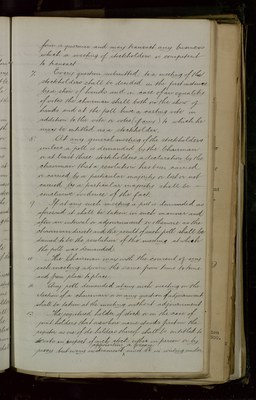 form a quorum and may transact any business
which a meeting of stockholders is competent
to transact
7. Every question submitted to a meeting of the
stockholders shall be decided in the first instance
by a show of hands and in case of an equality
of votes the chairman shall both on the show of
hands and at the poll have a casting vote in
addition to the vote or votes (if any) to which he
may be entitled as a stockholder.
8. At any general meeting of the stockholders
unless a poll is demanded by the Chairman
or at least three stockholders a declaration by the
chairman that a resolution has been carried
or carried by a particular majority or lost or not
carried by a particular majority shall be
conclusive evidence of the fact.
9. If at any such meeting a poll is demanded as
aforesaid it shall be taken in such manner and
either at once or after an adjournment as the
chairman directs and the result of such poll shall be
deemed to be the resolution of the meeting at which
the poll was demanded.
10. The Chairman may with the consent of any
such meeting adjourn the same from time to time
and from place to place.
11. Any poll demanded at any such meeting on the
election of a chairman or on any question of adjournment
shall be taken at the meeting without adjournment
12. The registered holder of stock or in the case of
joint holders that one whose name stands first on the
register as one of the holders thereof shall be entitled to
vote in respect of such stock either in person or by
proxy
appointing a proxy